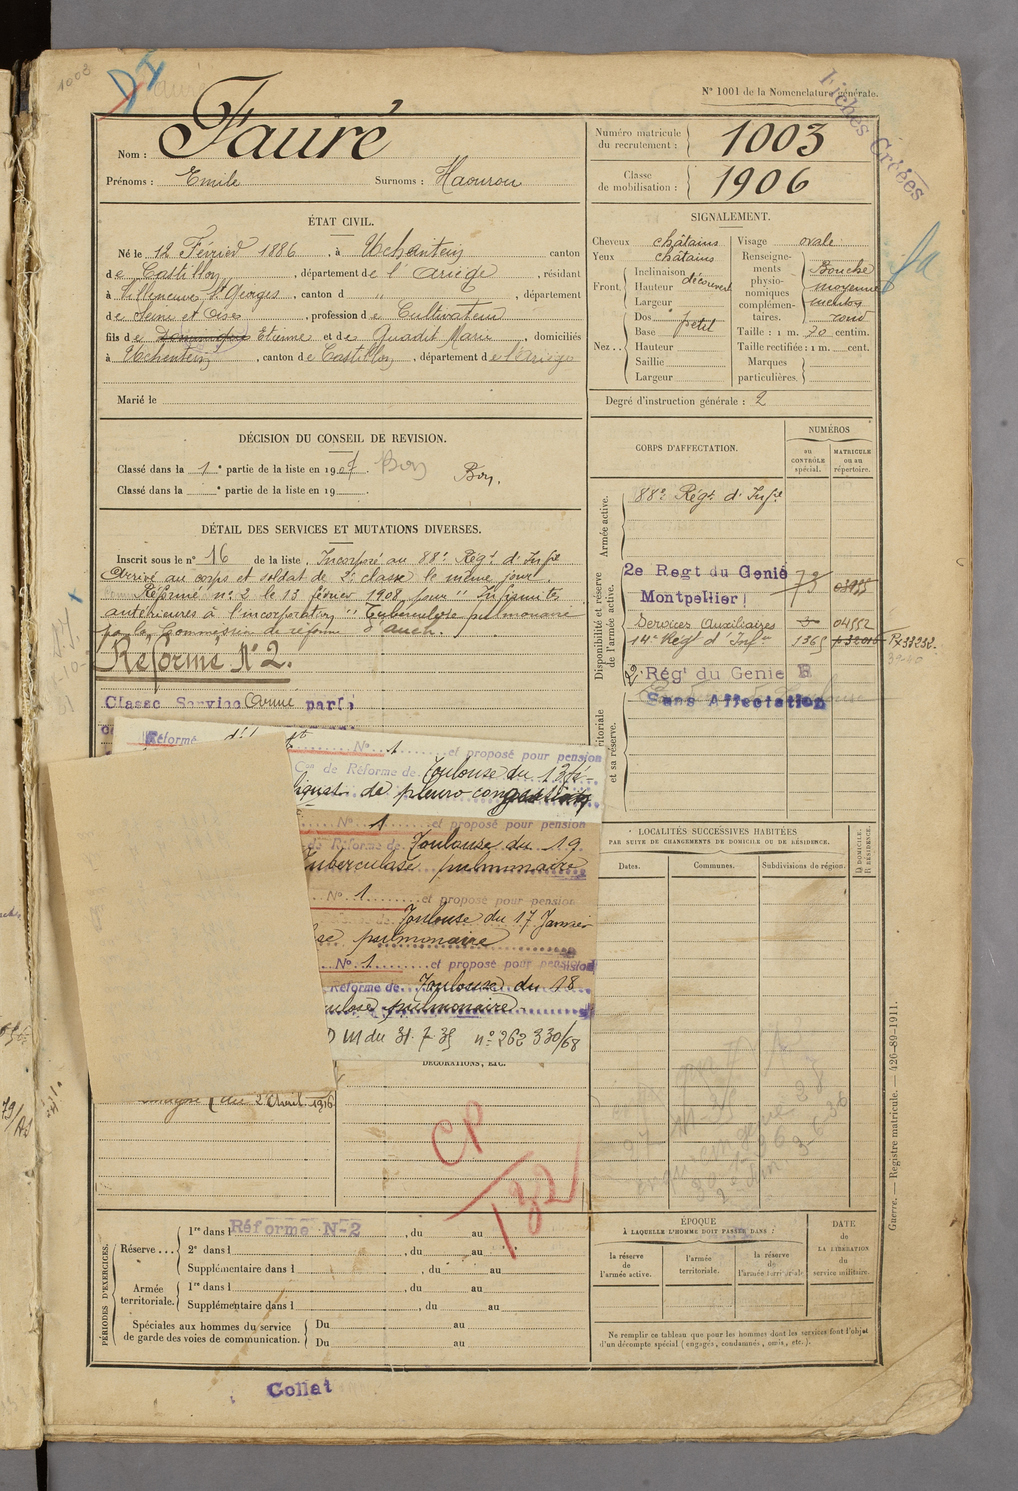 1003
N° 1001 de la Nomenclature générale.
Fiches Créées
Nom : Fauré
Prénoms : Emile Surnoms : Haourou
Numéro matricule du recrutement : 1003
Classe de mobilisation : 1906
ÉTAT CIVIL.
Né le 12 Février 1886, à Uchentein canton
de Castillon, département de l'Ariège, résidant
à Villeneuve St Georges, canton d " , département
de Seine et Oise, profession de Cultivateur
fils de Dominique Etienne et de Quadit Marie, domiciliés
à Uchentein, canton de Castillon, département de l'Ariège
Marié le
SIGNALEMENT.
Cheveux châtains
Yeux châtains
Front Inclinaison découvert
Hauteur
Largeur
Nez Dos petit
Base
Hauteur
Saillie
Largeur
Visage ovale
Renseignements physionomiques complémentaires. Bouche moyenne menton rond
Taille : 1 m. 70 centim.
Taille rectifiée : 1 m. cent.
Marques particulières.
Degré d'instruction générale : 2
DÉCISION DU CONSEIL DE REVISION.
Classé dans la 1e partie de la liste en 1907 Bon Bon.
Classé dans la e partie de la liste en 19
CORPS D'AFFECTATION.
NUMÉROS
au CONTRÔLE spécial.
MATRICULE ou au répertoire.
Armée active.
88e Régt d'Infie
Disponibilité et réserve de l'armée active.
2e Regt du Genie
Montpellier
Services Auxiliaires 04552
14e Régt d'Infie 1365
2e Régt du Genie R
Sans Affectation
et sa réserve.
DÉTAIL DES SERVICES ET MUTATIONS DIVERSES.
Inscrit sous le n° 16 de la liste. Incorporé au 88e Régt d'Infie
Arrivé au corps et soldat de 2e classe le même jour.
Réformé n° 2 le 13 février 1908 pour " Infirmités
antérieures à l'incorporation " Tuberculose pulmonaire
par la Commission de réforme d'Auch.
Réformé N° 2.
Classe Service Armé parti
Réformé
N° 1 et proposé pour pension
Con de Réforme de Toulouse du 13
de pleuro congestion
N° 1 et proposé pour pension
de Réforme de Toulouse du 19
Tuberculose pulmonaire
N° 1 et proposé pour pension
Toulouse du 17 Janvier
pulmonaire
N° 1 et proposé pour pension
Réforme de Toulouse du 18
pulmonaire
M du 31.7.35 n° 262 330/68
DÉCORATIONS, ETC.
du 2 Avril 1916
CP
132
LOCALITÉS SUCCESSIVES HABITÉES
PAR SUITE DE CHANGEMENTS DE DOMICILE OU DE RÉSIDENCE.
Dates.
Communes.
Subdivisions de région.
D DOMICILE. R RÉSIDENCE.
PÉRIODES D'EXERCICES.
Réserve... 1re dans l Réforme N-2, du au
2e dans l , du au
Supplémentaire dans l , du au
Armée territoriale. 1re dans l , du au
Supplémentaire dans l , du au
Spéciales aux hommes du service de garde des voies de communication. Du au
Du au
ÉPOQUE
À LAQUELLE L'HOMME DOIT PASSER DANS :
la réserve de l'armée active.
l'armée territoriale.
la réserve de l'armée territoriale
DATE DE LA LIBÉRATION du service militaire.
Ne remplir ce tableau que pour les hommes dont les services font l'objet
d'un décompte spécial (engagés, condamnés, omis, etc.).
Guerre. — Registre matricule. — 426-89-1911.
Collat